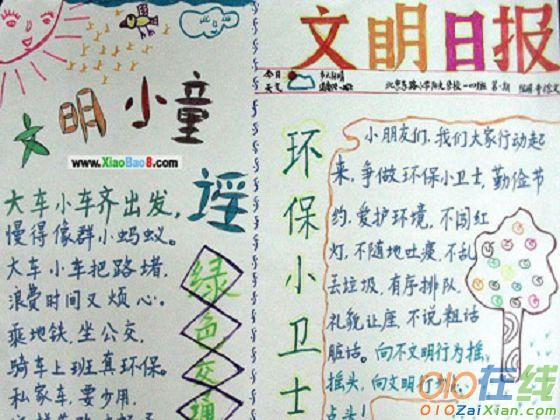 文明小童谣
www.XiaoBao8.com
大车小车齐出发,
慢得像群小蚂蚁。
大车小车把路堵,
浪费时间又烦心。
乘地铁,坐公交,
骑车上班真环保。
私家车,要少用,
绿色交通
文明日报
今日
天气
环保小卫士
小朋友们,我们大家行动起
来,争做环保小卫士,勤俭节
约,爱护环境,不闯红
灯,不随地吐痰,不乱
丢垃圾,有序排队,
礼貌让座,不说粗话
脏话。向不文明行为摇
摇头,向文明行
点头!
010在线
010ZaiXian.com